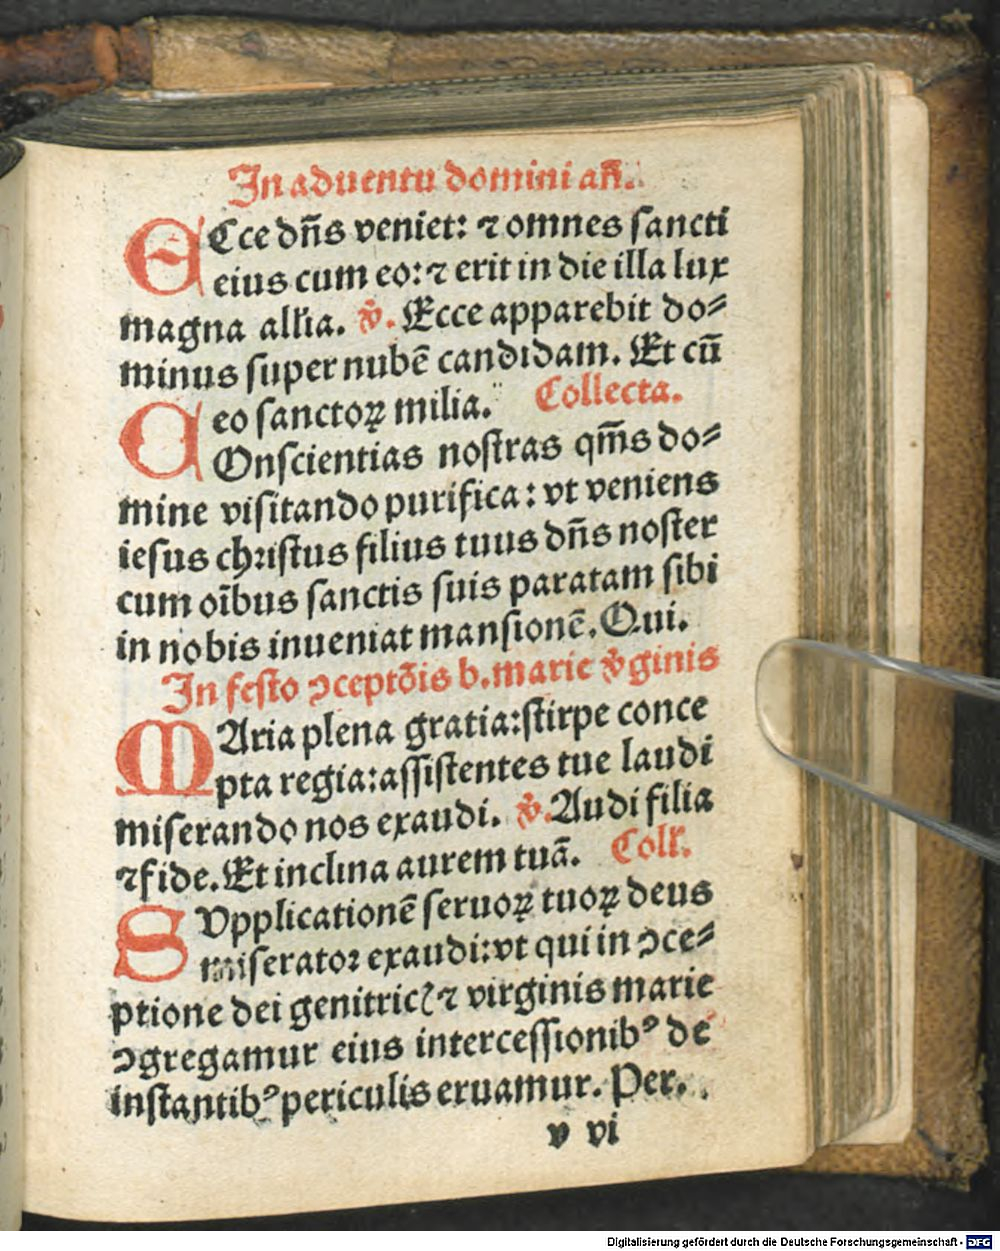 In aduentu domini añ.
ECce dñs veniet: ⁊ omnes sancti
eius cum eo: ⁊ erit in die illa lux
magna allꝛia. ℣. Ecce apparebit do⸗
minus super nubē candidam. Et cū
eo sanctoꝝ milia. Collecta.
COnscientias nostras qm̄s do⸗
mine visitando purifica: vt veniens
iesus christus filius tuus dñs noster
cum oībus sanctis suis paratam sibi
in nobis inueniat mansionē. Qui.
In festo ↄceptōis b. marie v̇ginis
MAria plena gratia: stirpe conce
pta regia: assistentes tue laudi
miserando nos exaudi. ℣. Audi filia
⁊ fide. Et inclina aurem tuā. Coll̄.
SVpplicationē seruoꝝ tuoꝝ deus
miserator exaudi: vt qui in ↄce⸗
ptione dei genitricꝭ ⁊ virginis marie
ↄgregamur eius intercessionibꝰ de
instantibꝰ periculis eruamur. Per.
v vi
Digitalisierung gefördert durch die Deutsche Forschungsgemeinschaft - DFG